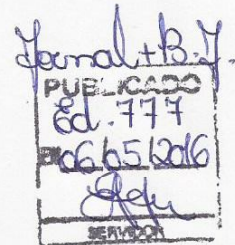 Jornal + B.J.
PUBLICADO
Ed. 777
EM 06/05/2016
SERVIDOR